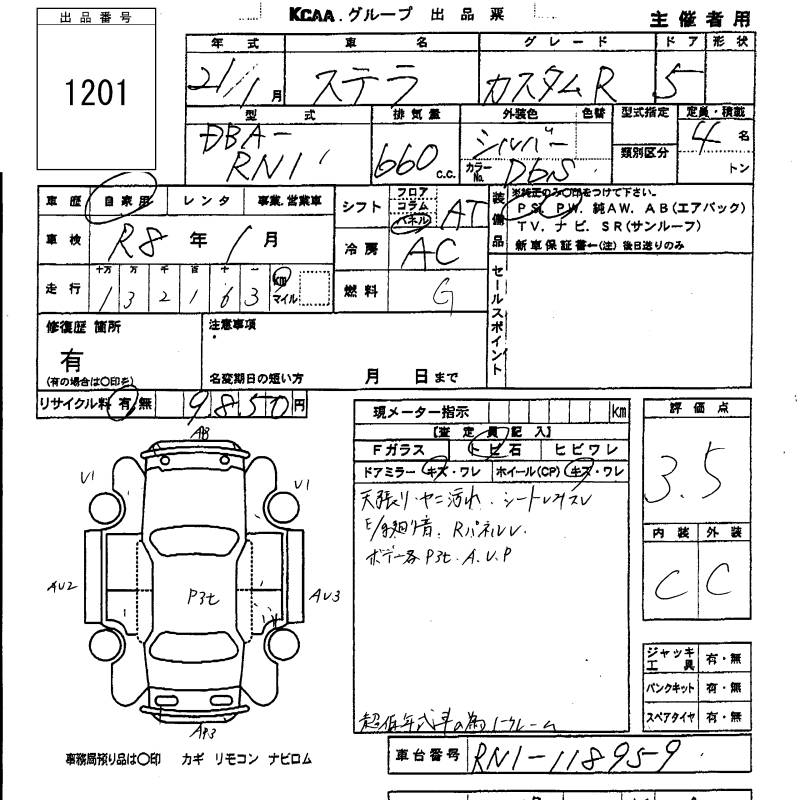 KCAA.グループ 出品票 主催者用
出品番号
1201
年式 車名 グレード ドア 形状
21/1月 ステラ カスタムR 5
型式 排気量 外装色 色替 型式指定 定員・積載
DBA-
RN1 660 c.c. シルバー 類別区分 4名
カラーNo. D6S トン
車歴 自家用 レンタ 事業.営業車
シフト フロア コラム パネル AT
装備品 ※純正のみ○印をつけて下さい。
PS. PW. 純AW. AB(エアバック)
TV. ナビ. SR(サンルーフ)
新車保証書←(注) 後日送りのみ
車検 R8年1月
冷房 AC
走行 十万 万 千 百 十 一 km マイル
132163
燃料 G
セールスポイント
修復歴 箇所 注意事項
有
(有の場合は○印を) 名変期日の短い方 月 日まで
リサイクル料 有.無 9850円
現メーター指示 km
【査定員記入】
Fガラス トビ石 ヒビワレ
ドアミラー キズ・ワレ ホイール(CP) キズ・ワレ
天張り・ヤニ汚れ.シートレススレ
Rパネルレ
ボデー各P3t.A.U.P
評価点
3.5
内装 外装
C C
A3
U1 U1
AU2 P3t AU3
AP3
ジャッキ 工具 有・無
パンクキット 有・無
スペアタイヤ 有・無
超低年式車の為ノークレーム
車台番号 RN1-118959
事務局預り品は○印 カギ リモコン ナビロム